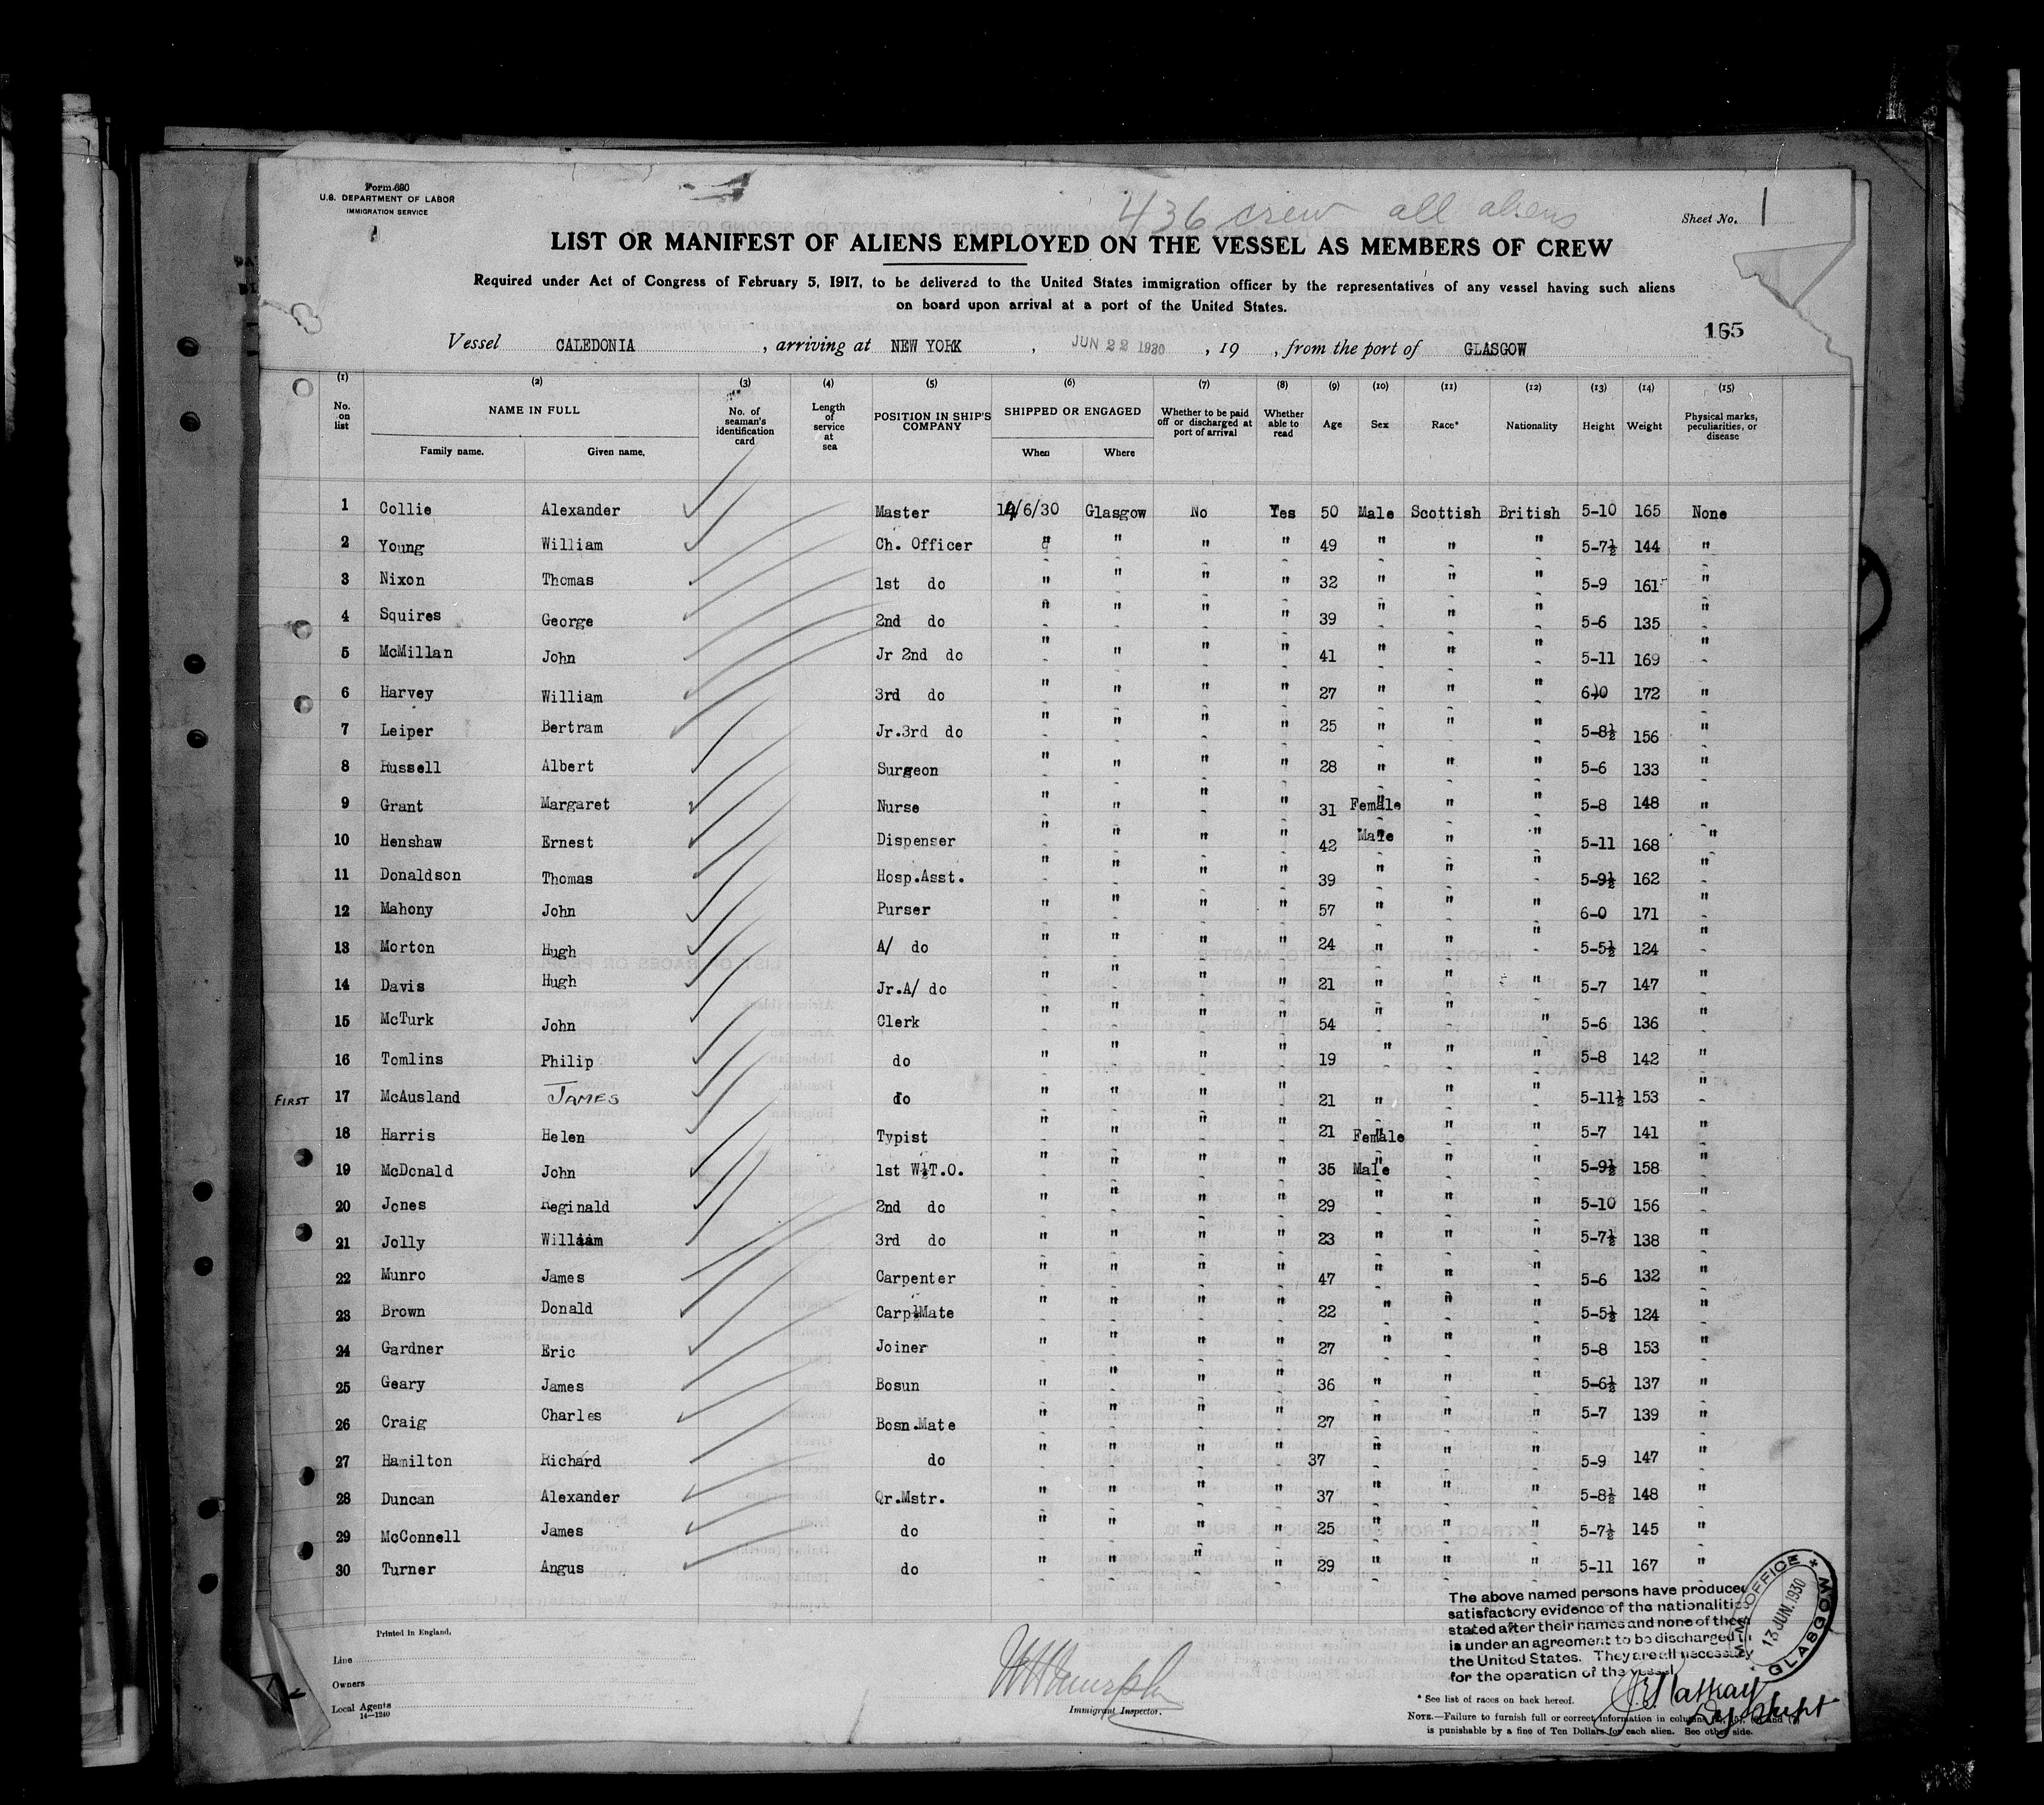 Form 680
U.S. DEPARTMENT OF LABOR
IMMIGRATION SERVICE
436 crew all aliens
Sheet No. 1
LIST OR MANIFEST OF ALIENS EMPLOYED ON THE VESSEL AS MEMBERS OF CREW
Required under Act of Congress of February 5, 1917, to be delivered to the United States immigration officer by the representatives of any vessel having such aliens
on board upon arrival at a port of the United States.
165
Vessel CALEDONIA, arriving at NEW YORK, JUN 22 1930, 19 , from the port of GLASGOW
(1) (2) (3) (4) (5) (6) (7) (8) (9) (10) (11) (12) (13) (14) (15)
No. on list NAME IN FULL No. of seaman's identification card Length of service at sea POSITION IN SHIP'S COMPANY SHIPPED OR ENGAGED Whether to be paid off or discharged at port of arrival Whether able to read Age Sex Race* Nationality Height Weight Physical marks, peculiarities, or disease
Family name. Given name. When Where
1 Collie Alexander Master 14/6/30 Glasgow No Yes 50 Male Scottish British 5-10 165 None
2 Young William Ch. Officer " " " " 49 " " " 5-7½ 144 "
3 Nixon Thomas 1st do " " " " 32 " " " 5-9 161 "
4 Squires George 2nd do " " " " 39 " " " 5-6 135 "
5 McMillan John Jr 2nd do " " " " 41 " " " 5-11 169 "
6 Harvey William 3rd do " " " " 27 " " " 6-0 172 "
7 Leiper Bertram Jr.3rd do " " " " 25 " " " 5-8½ 156 "
8 Russell Albert Surgeon " " " " 28 " " " 5-6 133 "
9 Grant Margaret Nurse " " " " 31 Female " " 5-8 148 "
10 Henshaw Ernest Dispenser " " " " 42 Male " " 5-11 168 "
11 Donaldson Thomas Hosp.Asst. " " " " 39 " " " 5-9½ 162 "
12 Mahony John Purser " " " " 57 " " " 6-0 171 "
13 Morton Hugh A/ do " " " " 24 " " " 5-5½ 124 "
14 Davis Hugh Jr.A/ do " " " " 21 " " " 5-7 147 "
15 McTurk John Clerk " " " " 54 " " " 5-6 136 "
16 Tomlins Philip do " " " " 19 " " " 5-8 142 "
FIRST 17 McAusland JAMES do " " " " 21 " " " 5-11½ 153 "
18 Harris Helen Typist " " " " 21 Female " " 5-7 141 "
19 McDonald John 1st W.T.O. " " " " 35 Male " " 5-9½ 158 "
20 Jones Reginald 2nd do " " " " 29 " " " 5-10 156 "
21 Jolly William 3rd do " " " " 23 " " " 5-7½ 138 "
22 Munro James Carpenter " " " " 47 " " " 5-6 132 "
23 Brown Donald Carp.Mate " " " " 22 " " " 5-5½ 124 "
24 Gardner Eric Joiner " " " " 27 " " " 5-8 153 "
25 Geary James Bosun " " " " 36 " " " 5-6½ 137 "
26 Craig Charles Bosn.Mate " " " " 27 " " " 5-7 139 "
27 Hamilton Richard do " " " " 37 " " " 5-9 147 "
28 Duncan Alexander Qr.Mstr. " " " " 37 " " " 5-8½ 148 "
29 McConnell James do " " " " 25 " " " 5-7½ 145 "
30 Turner Angus do " " " " 29 " " " 5-11 167 "
The above named persons have produced
satisfactory evidence of the nationalities
stated after their names and none of them
is under an agreement to be discharged in
the United States. They are all necessary
for the operation of the vessel
OFFICE GLASGOW
13 JUN. 1930
Printed in England.
Line
Owners
Local Agents
14—1240
Immigrant Inspector.
* See list of races on back hereof.
NOTE.—Failure to furnish full or correct information in columns and
is punishable by a fine of Ten Dollars for each alien. See other side.